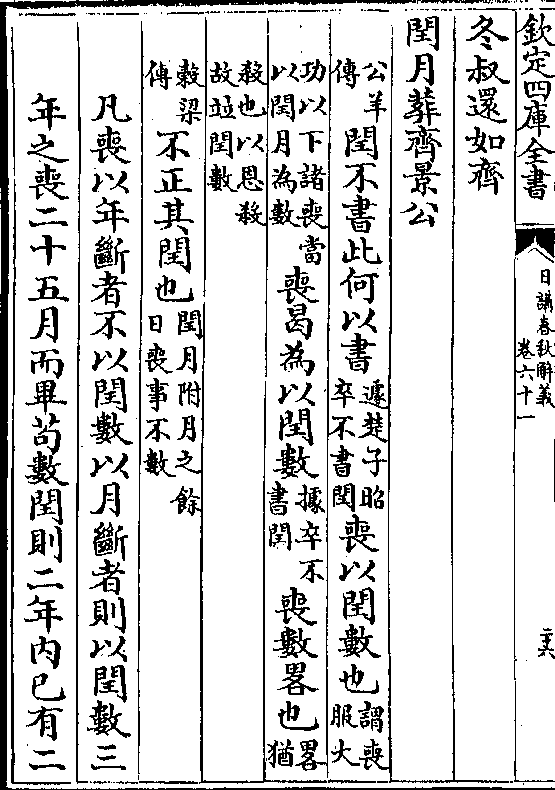 欽定四庫全書
日講春秋觧義
卷六十一
冬叔還如齊
閏月葬齊景公
公羊傳閏不書此何以書據楚子昭卒不書閏喪以閏數也謂喪服大
功以下諸喪當以閏月為數喪曷為以閏數據卒不書閏喪數畧也畧猶
殺也以恩殺故竝閏數
穀梁傳不正其閏也閏月附月之餘日喪事不數
凡喪以年斷者不以閏數以月斷者則以閏數三
年之喪二十五月而畢茍數閏則二年内已有二